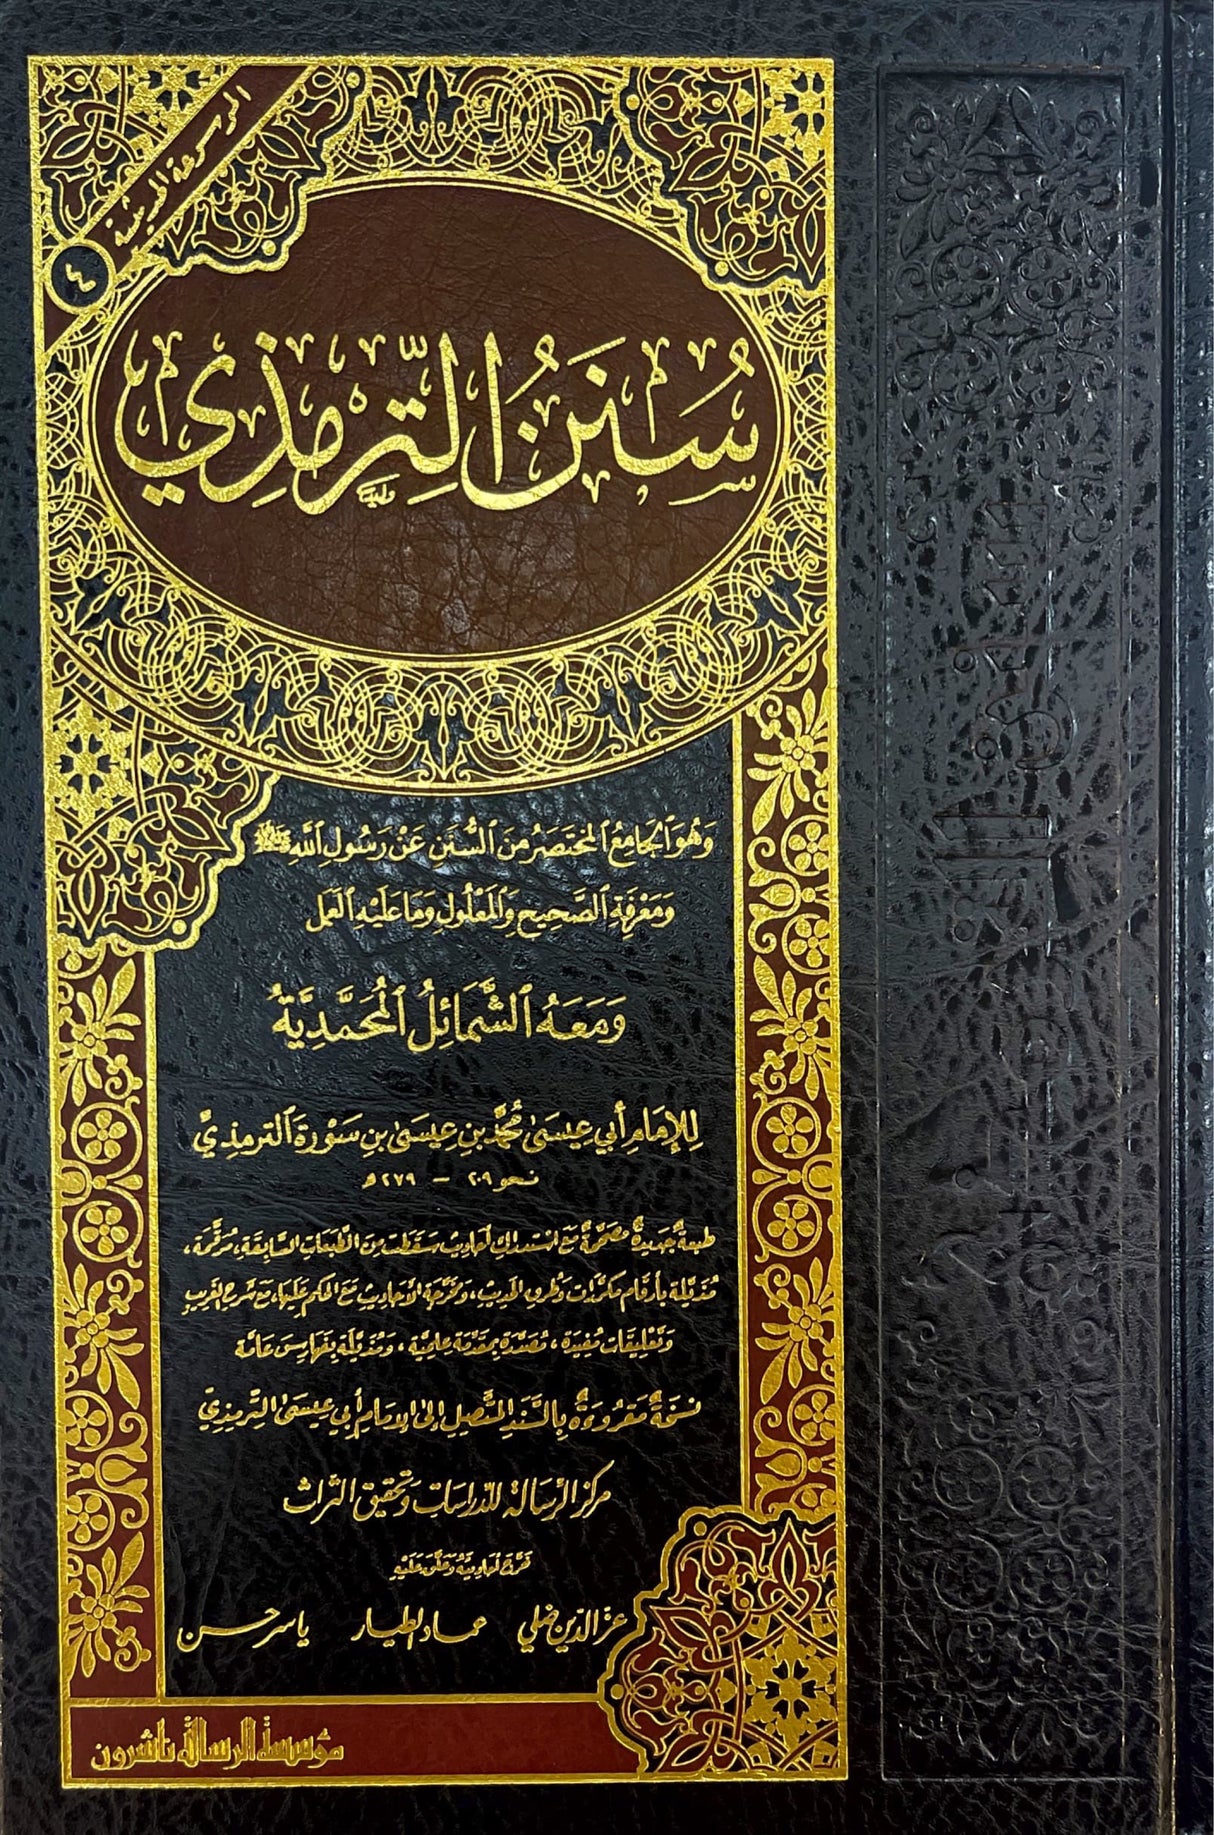 الموسوعة الحديثية
٤
سُنَنُ التِّرمِذِي
وَهُوَ الجَامِعُ المُخْتَصَرُ مِنَ السُّنَنِ عَنْ رَسُولِ اللَّهِ ﷺ
وَمَعْرِفَةِ الصَّحِيحِ وَالمَعْلُولِ وَمَا عَلَيْهِ العَمَل
وَمَعَهُ الشَّمَائِلُ المُحَمَّدِيَّةُ
لِلإِمَامِ أَبِي عِيسَىٰ مُحَمَّدِ بْنِ عِيسَىٰ بْنِ سَوْرَةَ التِّرمِذِيِّ
نحو ٢٠٩ – ٢٧٩ هـ
طبعةٌ جَديدةٌ مُصَحَّحَةٌ مَعَ استدراكِ أحاديثَ سَقَطت مِنَ الطَّبعاتِ السَّابِقَة، مُرَقَّمَة،
مُذَيَّلة بأرقام مكرَّرات وَطُرق الحديث، وَمُخَرَّجة الأحاديث مَعَ الحكم عَلَيها، مَعَ شَرح الغَريب
وَتَعليقَات مُفيدَة، مُصَدَّرة بمقَدّمَة عِلميَّة، وَمُذَيَّلَة بفَهَارسَ عَامَّة
نُسخَةٌ مَقرُوءَةٌ بِالسَّنَدِ المتَّصِلِ إلى الإمَامِ أَبي عِيسَىٰ التِّرمِذِي
مركز الرِّسَالة للدِّرَاسَات وَتحقيق التُّراث
خَرَّجَ أحَاديثَهُ وَعَلَّقَ عَلَيْهِ
عزّ الدّين ضلي عماد الطيار ياسر حسن
مؤسسة الرسالة ناشرون